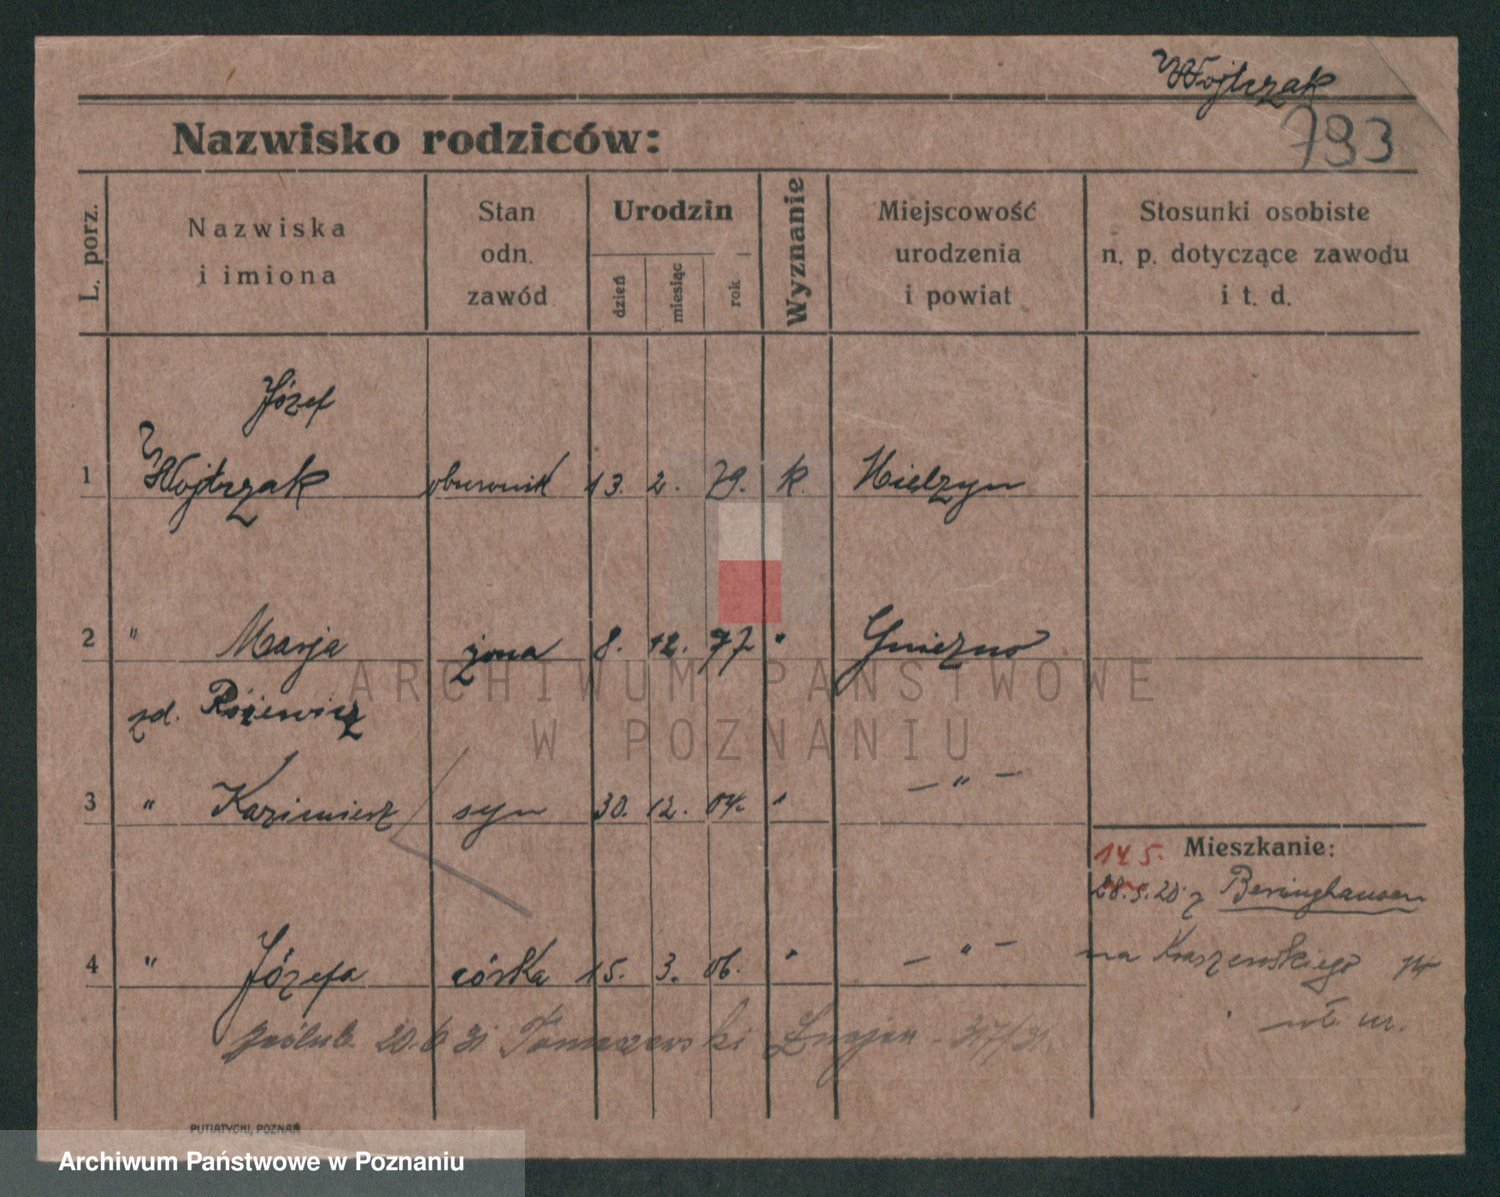 Wojtczak
Nazwisko rodziców:
793
L. porz.
Nazwiska
i imiona
Stan
odn.
zawód
Urodzin
dzień
miesiąc
rok
Wyznanie
Miejscowość
urodzenia
i powiat
Stosunki osobiste
n. p. dotyczące zawodu
i t. d.
Józef
1 Wojtczak obuwnik 13. 2. 79. k. Mielżyn
2 " Marja żona 8. 12. 77 " Gniezno
zd. Różewicz
3 " Kazimierz syn 30. 12. 04. " — " —
Mieszkanie:
14 5.
28.5.20 z Beninghausen
4 " Józefa córka 15. 3. 06. " — " —
na Kraszewskiego
ślub 20.6 31 Tomaszewski
ARCHIWUM PAŃSTWOWE
W POZNANIU
PUTIATYCKI, POZNAŃ
Archiwum Państwowe w Poznaniu